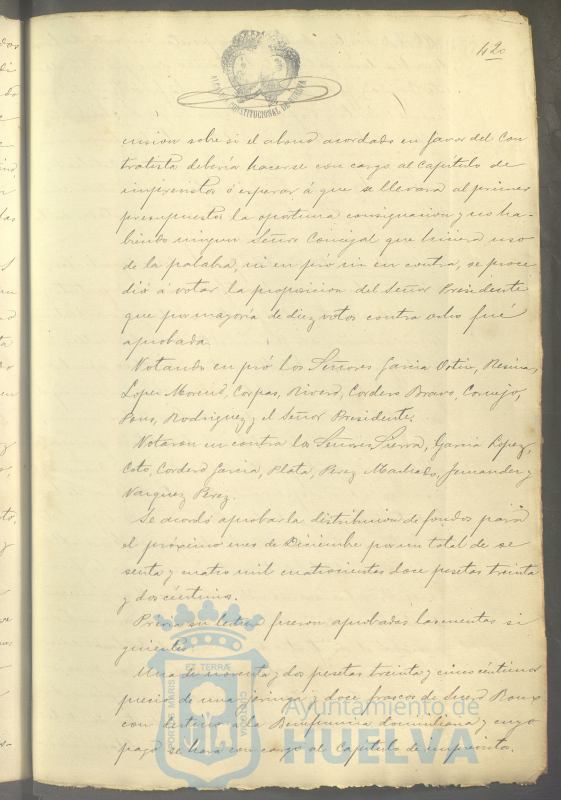 420
ALCALDIA CONSTITUCIONAL DE HUELVA
cusion sobre si el abono acordado en favor del Con
tratista debería hacerse con cargo al Capitulo de
imprevistos ó esperar á que se llevara al primer
presupuesto la oportuna consignacion y no ha-
biendo ningun Señor Concejal que hiciera uso
de la palabra, ni en pró ni en contra, se proce
dió á votar la proposicion del Señor Presidente
que por mayoria de diez votos contra ocho fué
aprobada.
Votando en pró los Señores Garcia Ortiz, Resinas,
Lopez Moreno, Corpas, Rivero, Cordero Bravo, Cornejo,
Pons, Rodriguez y el Señor Presidente.
Votaron en contra los Señores Sierra, Garcia Lopez,
Coto, Cordero Garcia, Plata, Perez Machado, Fernandez y
Vazquez Perez.
Se acordó aprobar la distribucion de fondos para
el próximo mes de Diciembre por un total de se
senta y cuatro mil cuatrocientas doce pesetas treinta
y dos céntimos.
Prévia su lectura fueron aprobadas las cuentas si
guientes:
Una de noventa y dos pesetas treinta y cinco céntimos
precio de una jeringa y doce frascos de Suero Roux
con destino a la Beneficencia domiciliaria y cuyo
pago se hará con cargo al Capitulo de imprevistos.
PORTUS MARIS ET TERRÆ CUSTODIA
Ayuntamiento de
HUELVA